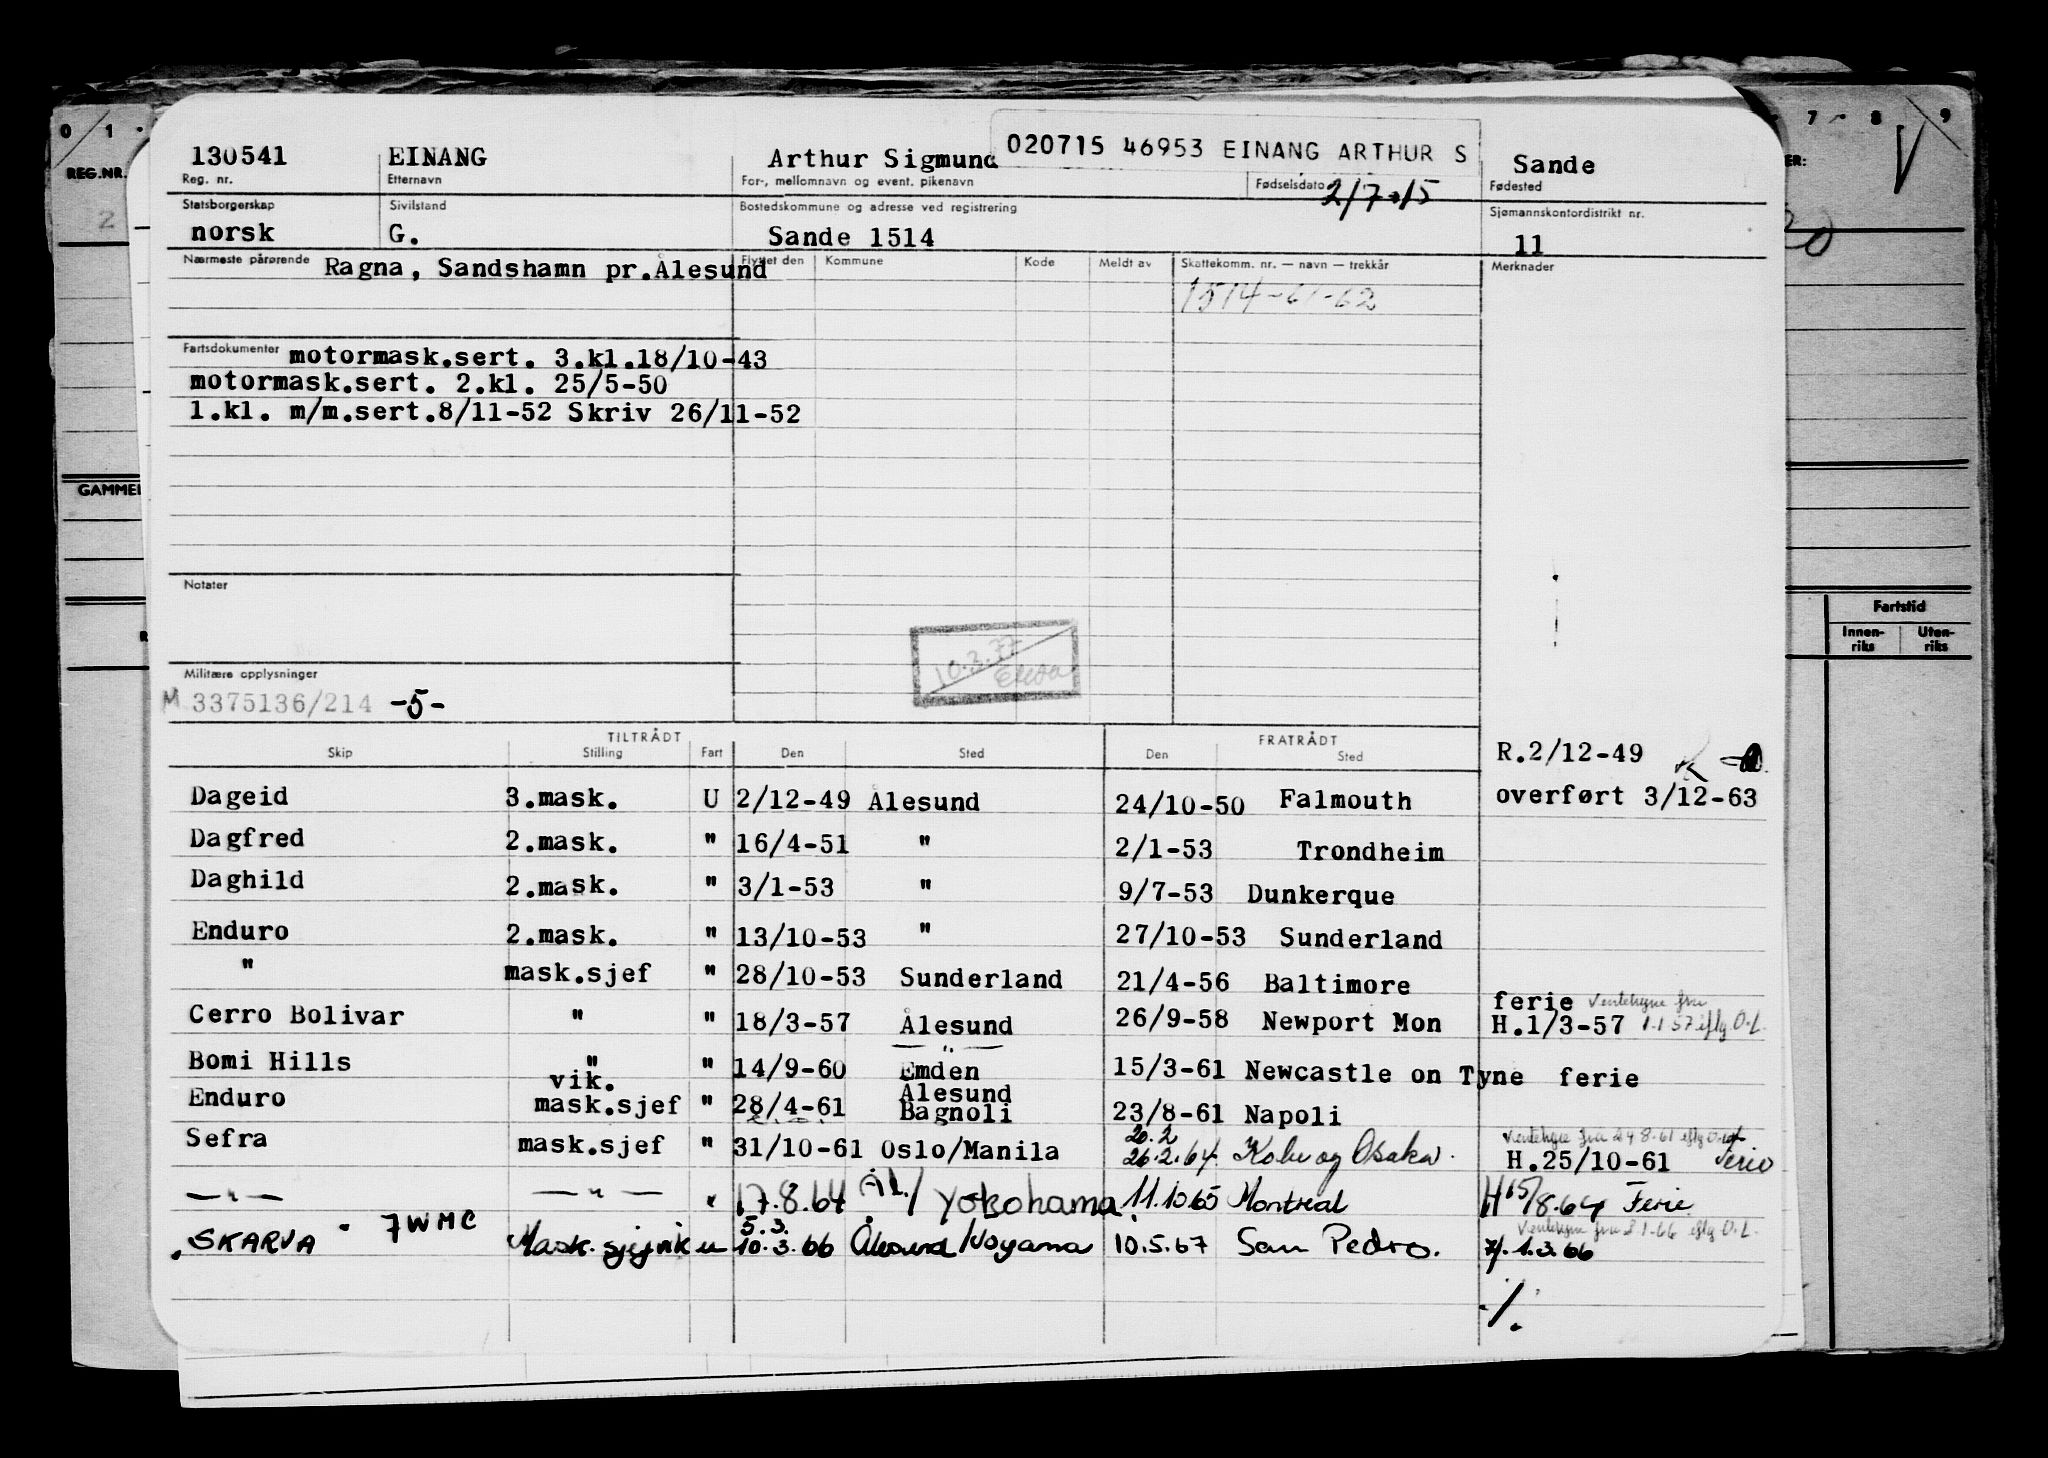 0 1 7 8 9
REG.NR.
130541 EINANG Arthur Sigmund 020715 46953 EINANG ARTHUR S Sande
Reg. nr. Etternavn For-, mellomnavn og event. pikenavn Fødselsdato 2/7-15 Fødested
Statsborgerskap Sivilstand Bostedskommune og adresse ved registrering Sjømannskontordistrikt nr.
norsk G. Sande 1514 11
Nærmeste pårørende Ragna, Sandshamn pr.Ålesund Flyttet den Kommune Kode Meldt av Skattekomm. nr. — navn — trekkår Merknader
1514-61-62
Fartsdokumenter motormask.sert. 3.kl.18/10-43
motormask.sert. 2.kl. 25/5-50
1.kl. m/m.sert.8/11-52 Skriv 26/11-52
GAMMEL
Notater
Fartstid
Innen-riks Uten-riks
10.3.77
Militære opplysninger
M 3375136/214 -5-
TILTRÅDT FRATRÅDT
Skip Stilling Fart Den Sted Den Sted
R.2/12-49
Dageid 3.mask. U 2/12-49 Ålesund 24/10-50 Falmouth overført 3/12-63
Dagfred 2.mask. " 16/4-51 " 2/1-53 Trondheim
Daghild 2.mask. " 3/1-53 " 9/7-53 Dunkerque
Enduro 2.mask. " 13/10-53 " 27/10-53 Sunderland
" mask.sjef " 28/10-53 Sunderland 21/4-56 Baltimore
ferie Ventehyre fra
Cerro Bolivar " " 18/3-57 Ålesund 26/9-58 Newport Mon H.1/3-57 1.1 57 iflg O.L.
— " —
Bomi Hills " " 14/9-60 Emden 15/3-61 Newcastle on Tyne ferie
vik. Ålesund
Enduro mask.sjef " 28/4-61 Bagnoli 23/8-61 Napoli
20.2 Ventehyre fra 24 8.61 iflg O.L.
Sefra mask.sjef " 31/10-61 Oslo/Manila 26.2.64 Kobe og Osaka. H.25/10-61 Ferie
— " — — " — " 17.8.64 Ål./Yokohama 11.10.65 Montreal H 15/8.64 Ferie
5.3. Ventehyre fra 2.1.66 iflg O.L.
SKARVA - 7WMC Mask.sjefvik u 10.3.66 Ålesund/ 10.5.67 San Pedro. H.1.3.66
./.